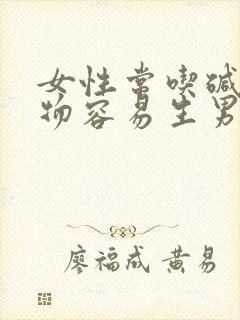 女性常喫碱
物容易生男
廖福成 黄易